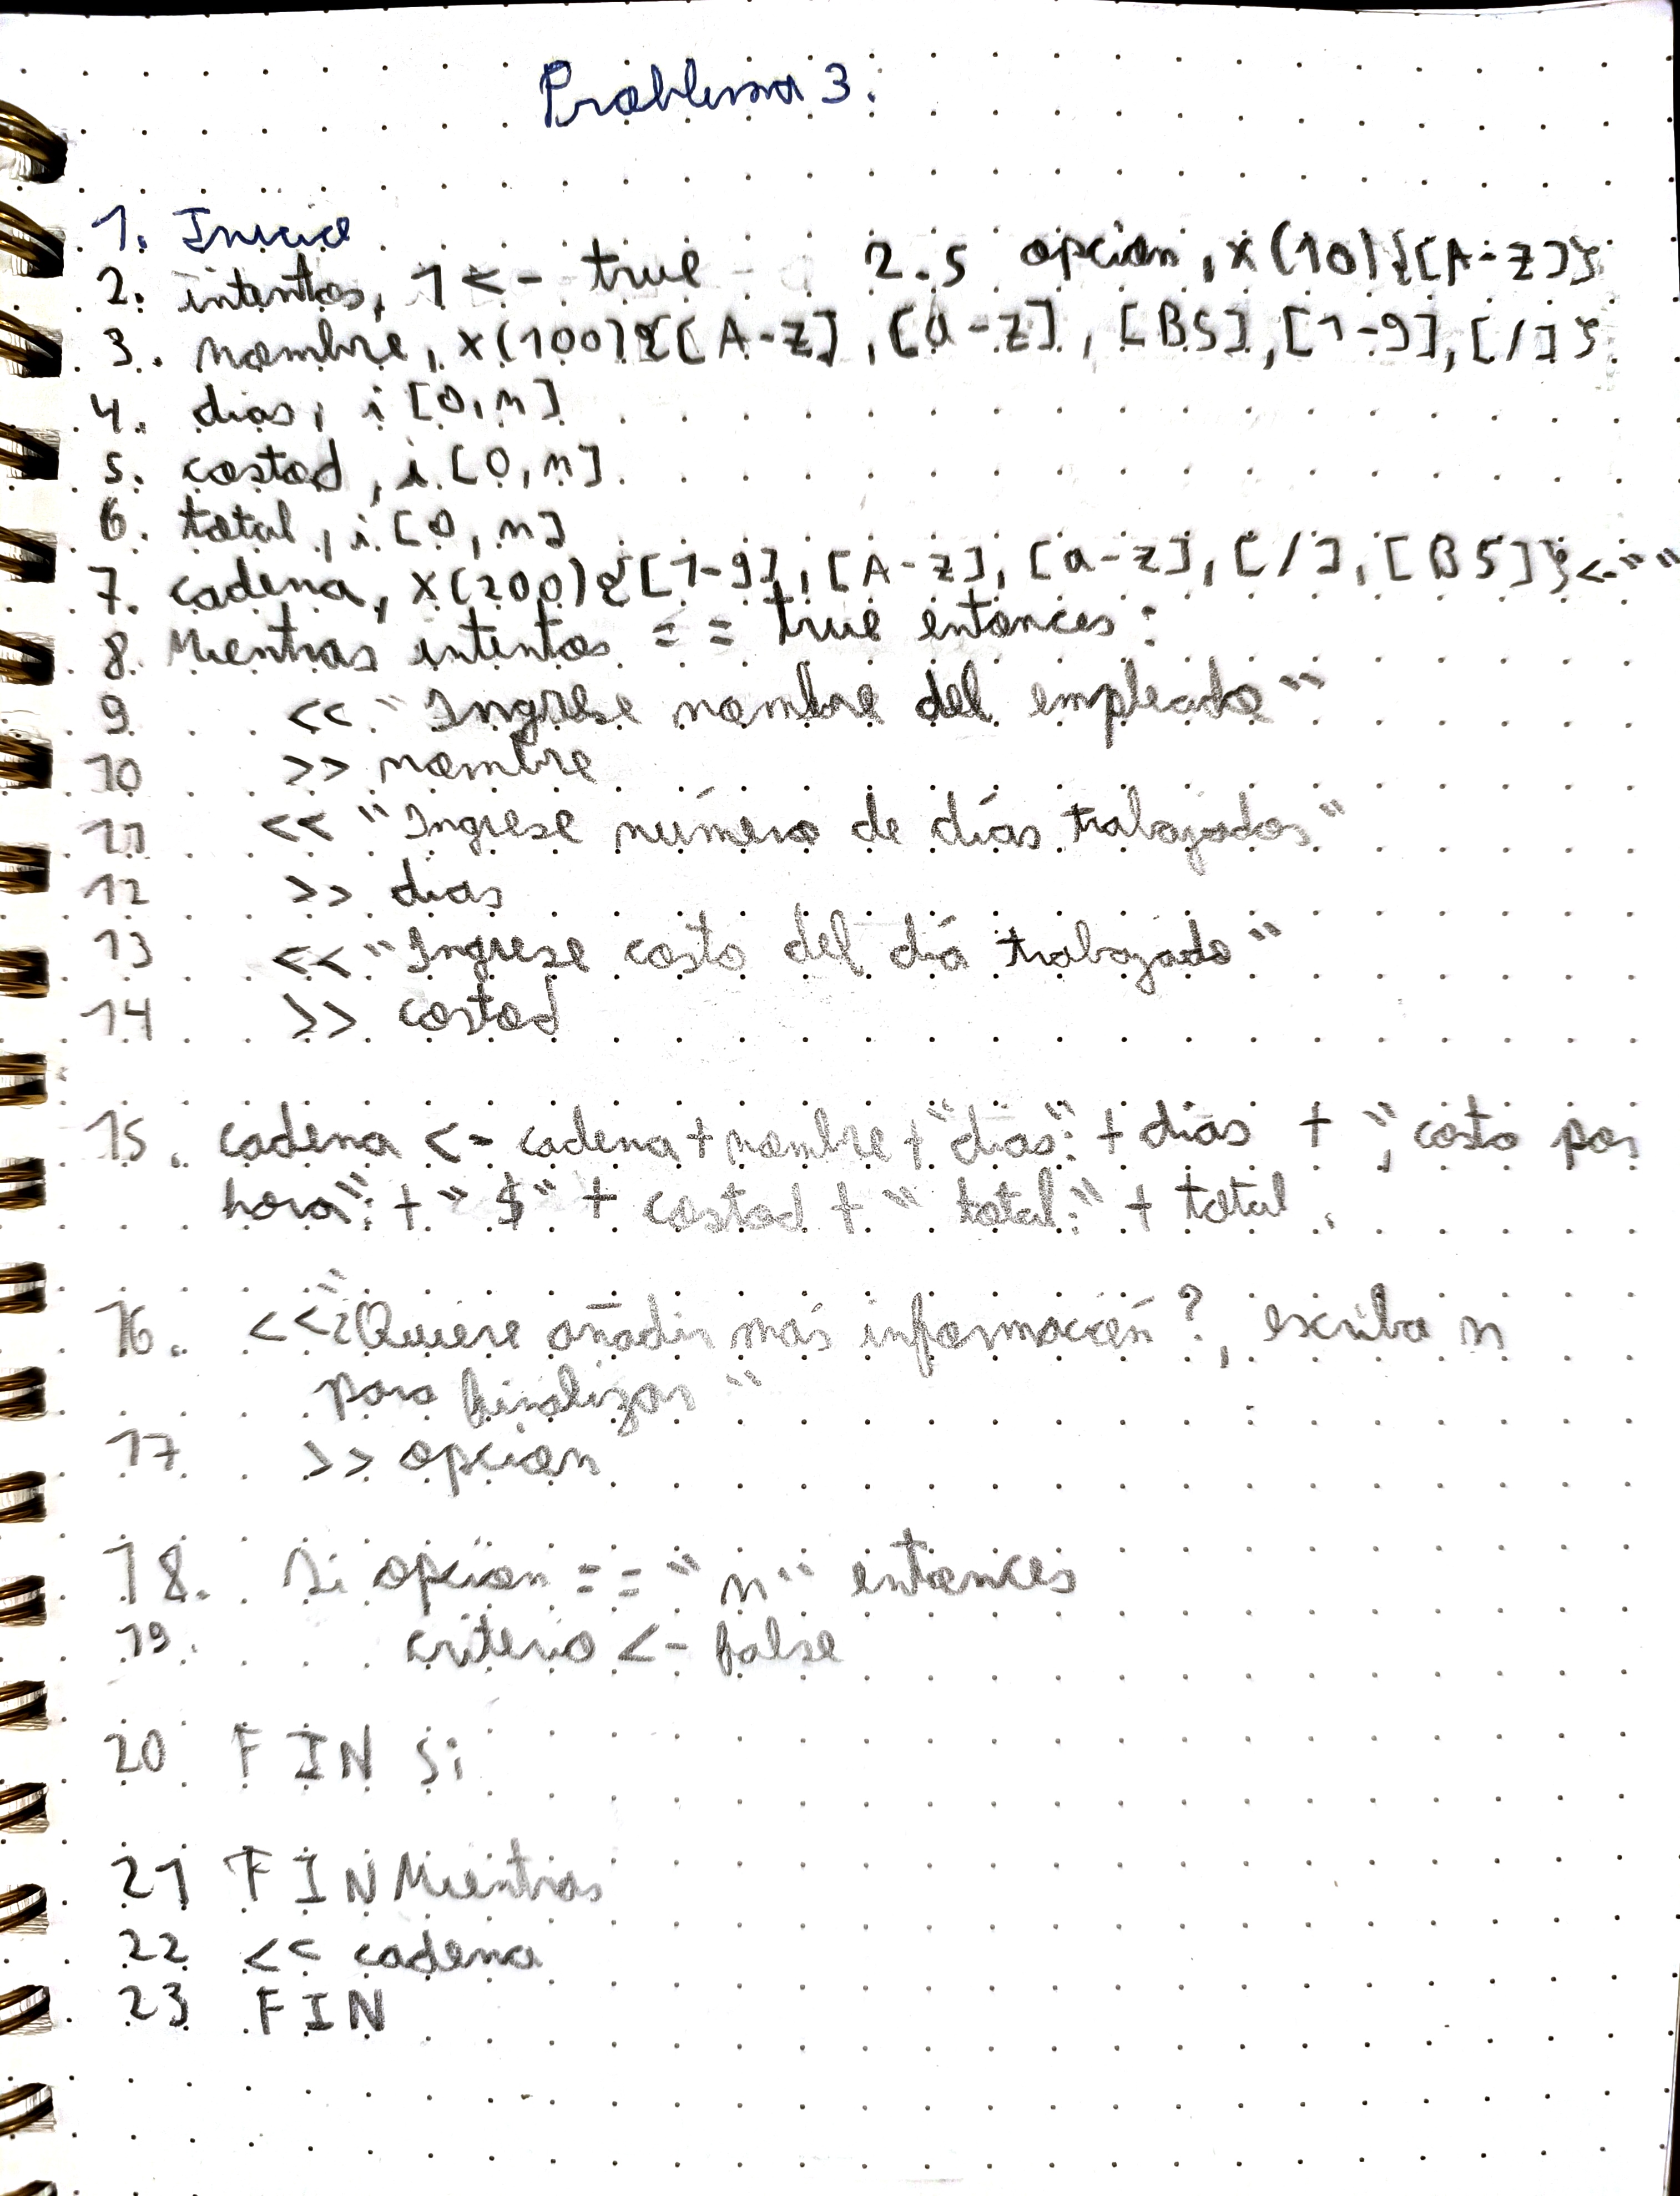 Problema 3.
1. Inicio
2. intentos, 1 <- true 2.5 opcion, x(10){[A-Z]}
3. nombre, x(100){[A-Z], [a-z], [BS], [1-9], [/]}
4. dias, i [0,n]
5. costod, i [0,n]
6. total, i [0,n]
7. cadena, x(200){[1-9], [A-Z], [a-z], [/], [BS]} <- ""
8. Mientras intentos == true entonces:
9 << "Ingrese nombre del empleado"
10 >> nombre
11 << "Ingrese número de días trabajados"
12 >> dias
13 << "Ingrese costo del día trabajado"
14 >> costod
15. cadena <- cadena + nombre + "dias": + dias + ", costo por
hora": + "$" + costod + " total:" + total.
16. << "¿Quiere añadir más información?, escriba n
para finalizar"
17 >> opcion
18. Si opcion == "n" entonces
19. criterio <- false
20 FIN Si
21 FIN Mientras
22 << cadena
23 FIN